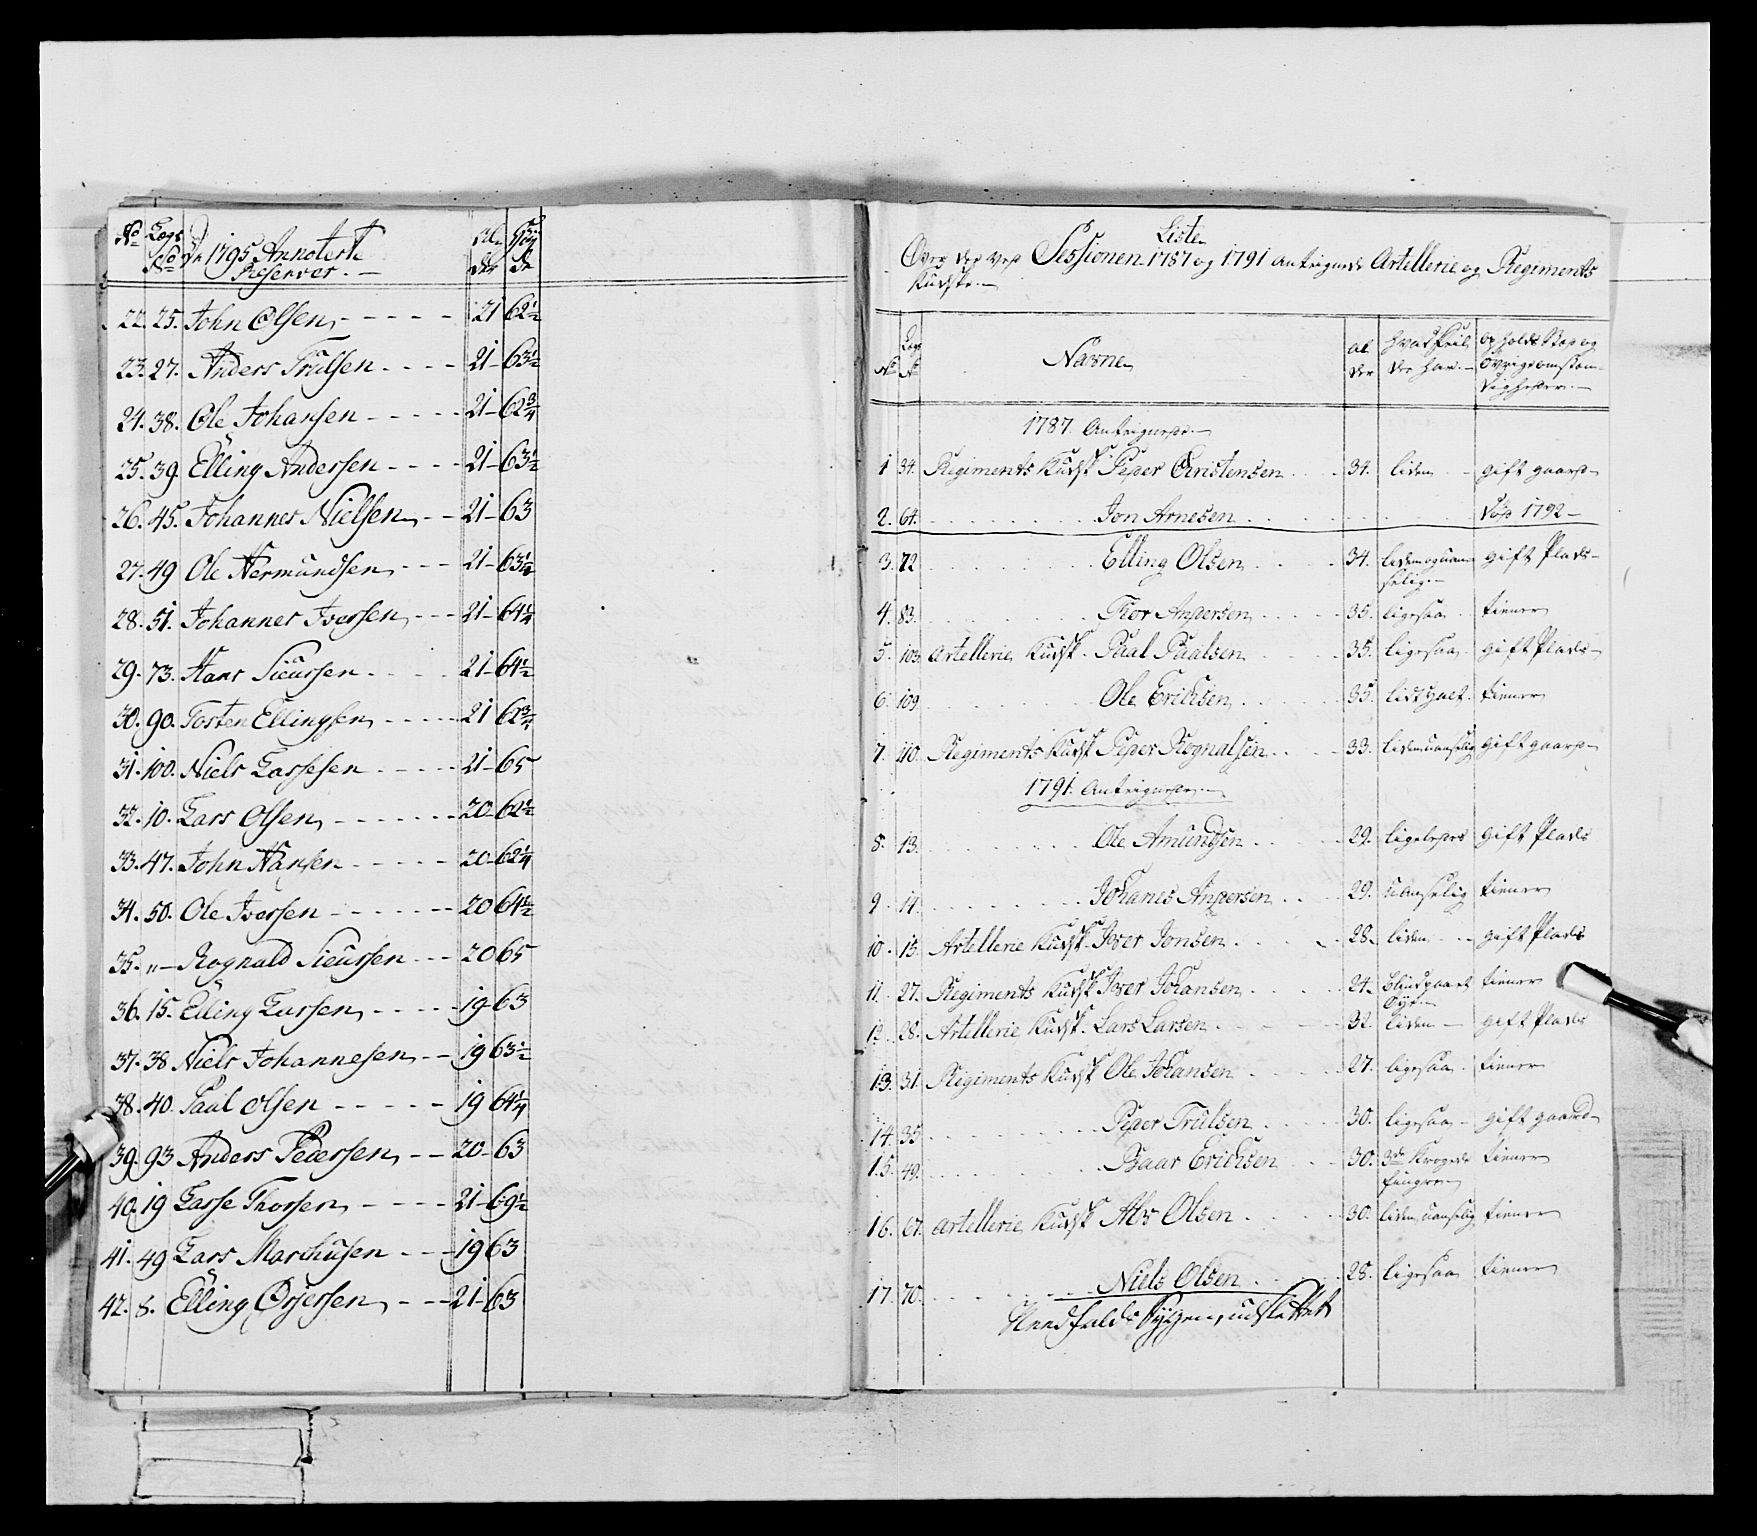 No Lægs No De 1795 Annoterte Reserver. Alder Høyde
22. 25. John Olsen 21 62½
23. 27. Anders Trulsen 21 63½
24. 38. Ole Johansen 21 62¾
25. 39. Elling Andersen 21 63½
26. 45. Johannes Nielsen 21 63
27. 49 Ole Hermundsen 21 63¼
28. 51. Johannes Iversen 21 64¼
29. 73. Hans Siursen 21 64½
30. 90. Tosten Ellingsen 21 62¾
31. 100. Niels Lassesen 21 65
32. 10. Lars Olsen 20 62½
33. 47. John Hansen 20 62¼
34. 50. Ole Iversen 20 64½
35. " Rognald Siursen 20 65
36. 15. Elling Larsen 19 63
37. 38 Niels Johannesen 19 63½
38. 40. Paul Olsen 19 64¼
39. 93 Anders Pedersen 20 63
40. 19 Lasse Thorsen 21 69½
41. 49 Lars Marchusen 19 63
42. 8. Elling Orsersen 21 63
Liste
Over de ved Sessionen 1787 og 1791 antegnede Artellerie og Regiments
Kudske.
No Læg No Navne alder hvad Feil de har. opholds Stæd og øvrige omstændigheder.
1787 Antegnede.
1 34. Regiments Kudsk Peder Christensen 31. liden gift gaard
2. 64. Jon Arnesen Død 1792
3. 72 Elling Olsen 34. liden og uanselig gift Plads
4. 83. Tor Andersen 35. ligesaa tiener
5. 103. Artellerie Kudsk. Paal Paalsen 35. ligesaa gift Plads
6 109 Ole Erichsen 35. lidt halt tiener
7. 110. Regiments Kudsk Peder Rognalsen 33. liden uanselig gift gaard
1791 Antegnede.
8. 13. Ole Amundsen 29. ligeledes gift Plads
9 14. Johanes Andersen 29. uanselig tiener
10. 15. Artellerie Kudsk. Iver Jonsen 28. liden gift Plads
11. 27. Regiments Kudsk Iver Johansen 24. blind paa et Øye tiener
12 28. Artellerie Kudsk. Lars Larsen 32. liden gift Plads
13. 31. Regiments Kudsk Ole Johansen 27. ligesaa tiener
14. 35 Peder Trulsen 30. ligesaa gift gaard
15. 49. Baar Erichsen 30. 3de Krogede fingre tiener
16. 67. Artellerie Kudsk Abr Olsen 30. liden, uanselig tiener
17. 70. Niels Olsen 28. ligesaa tiener
Nedfalds Sygen, udslettet